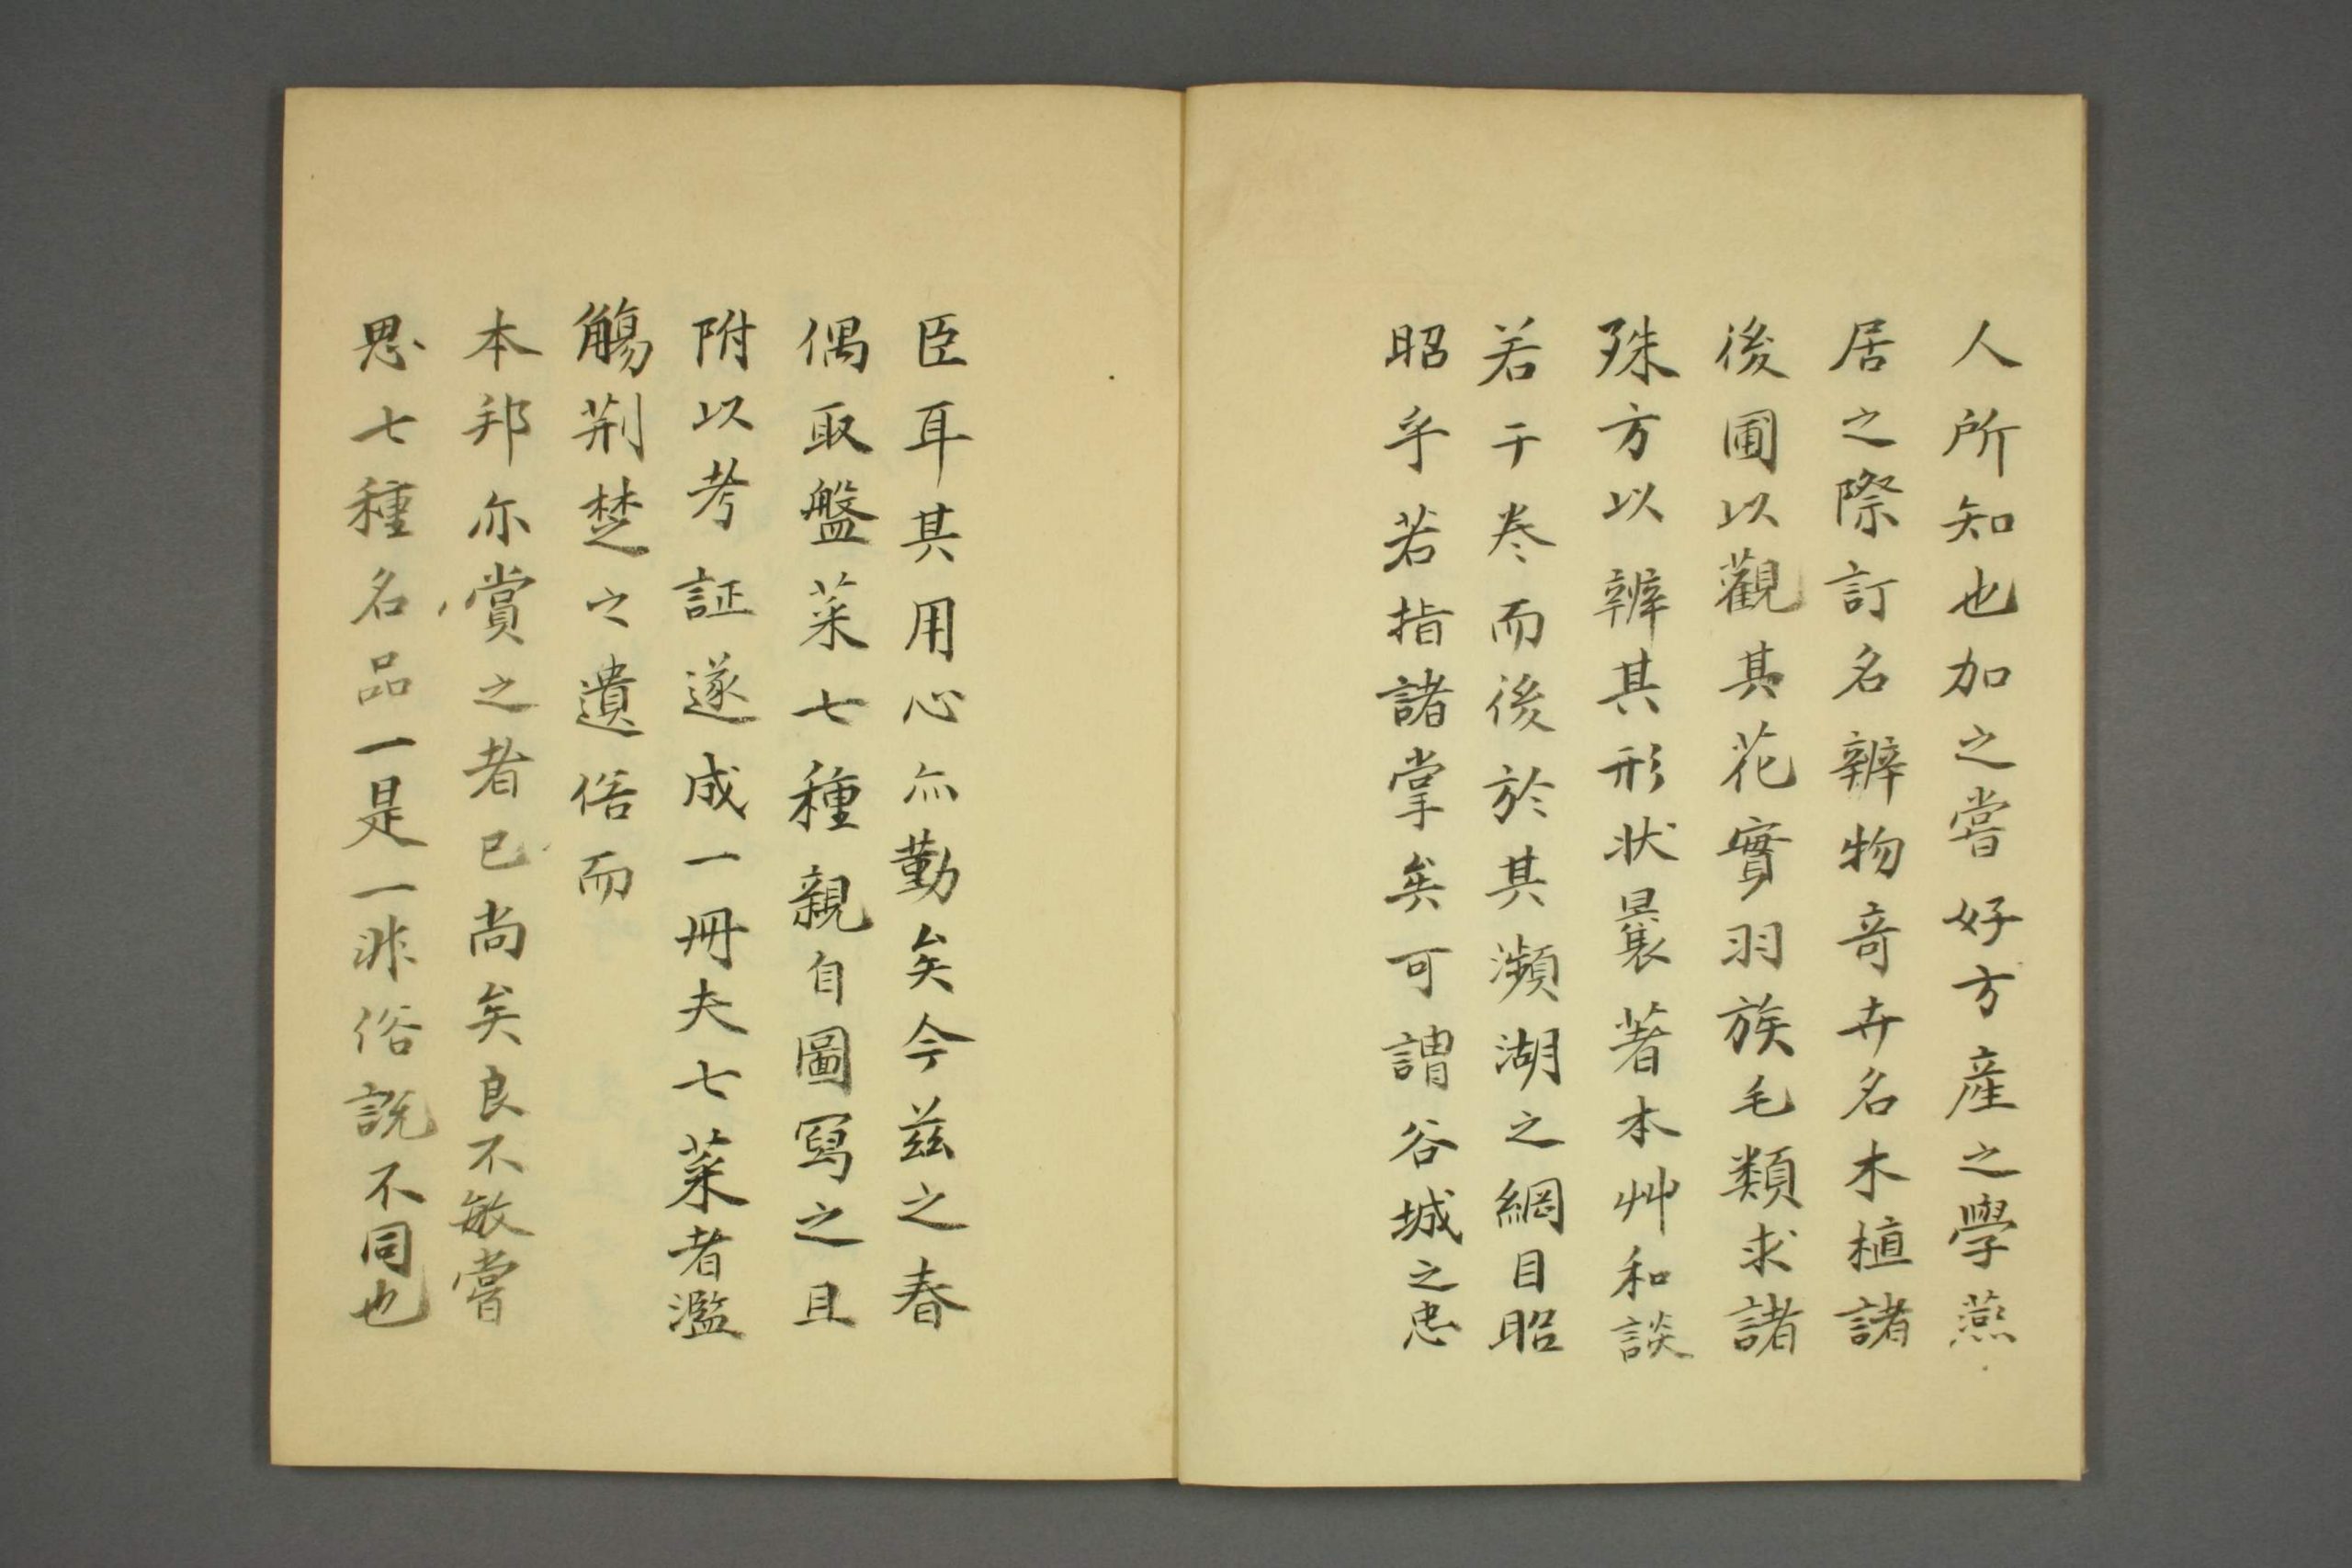 人所知也加之嘗好方産之學燕
居之際訂名辨物奇卉名木植諸
後圃以觀其花實羽族毛類求諸
殊方以辨其形状曩著本艸和談
若干卷而後於其瀕湖之綱目昭
昭乎若指諸掌矣可謂谷城之忠
臣耳其用心亦勤矣今茲之春
偶取盤菜七種親自圖寫之且
附以考証遂成一冊夫七菜者濫
觴荊楚之遺俗而
本邦亦賞之者已尚矣良不敏嘗
思七種名品一是一非俗説不同也